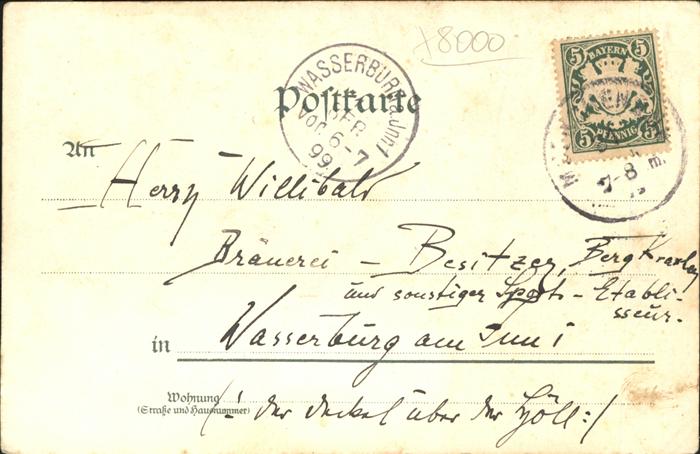 +8000
5 5
BAYERN
5 PFENNIG 5
WASSERBURG a. Inn 1
VOR 6-7
99
7-8
Postkarte
An
Herrn Willibald
Bräuerei - Besitzer, Berg
und sonstiger Sports - Etabli-
sseur.
in Wasserburg am Inn
Wohnung
(Straße und Hausnummer)
(: der Deckel über der Höll :)